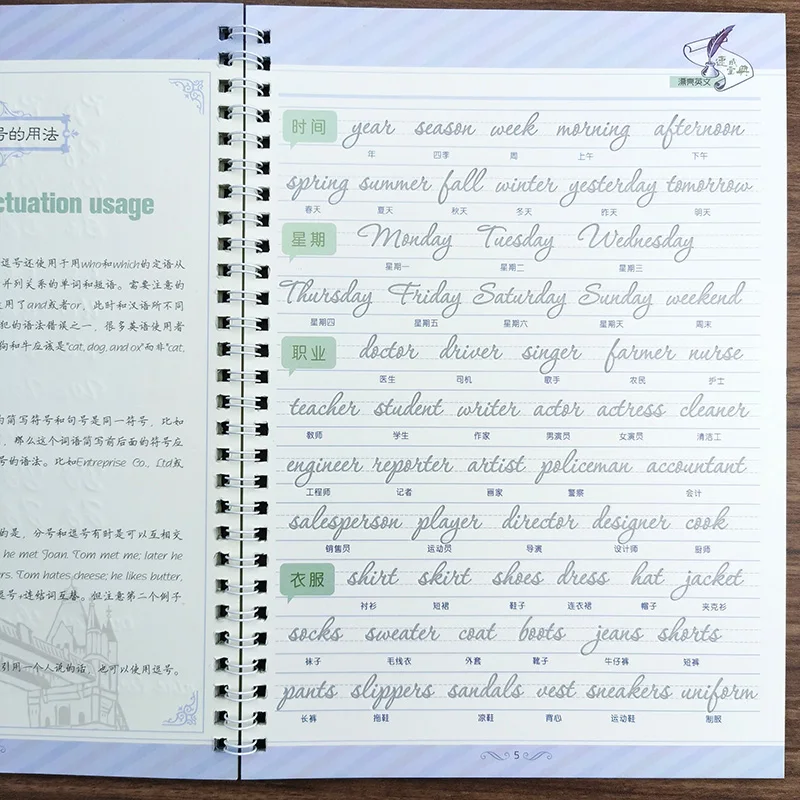 号的用法
ctuation usage
逗号还使用于用who和which的定语从
并列关系的单词和短语。需要注意的
使用了and或者or，此时和汉语所不同
犯的语法错误之一，很多英语使用者
狗和牛应该是"cat, dog, and ox"而非"cat,
的简写符号和句号是同一符号，比如
，那么这个词语简写前后面的符号应
号的语法。比如Entreprise Co., Ltd或
的是，分号和逗号有时是可以互相交
he met Joan. Tom met me; later he
rs. Tom hates cheese; he likes butter,
逗号+连结词互替。但注意第二个例子
引用一个人说的话，也可以使用逗号。
速成宝典
漂亮英文
时间 year season week morning afternoon
年 四季 周 上午 下午
spring summer fall winter yesterday tomorrow
春天 夏天 秋天 冬天 昨天 明天
星期 Monday Tuesday Wednesday
星期一 星期二 星期三
Thursday Friday Saturday Sunday weekend
星期四 星期五 星期六 星期天 周末
职业 doctor driver singer farmer nurse
医生 司机 歌手 农民 护士
teacher student writer actor actress cleaner
教师 学生 作家 男演员 女演员 清洁工
engineer reporter artist policeman accountant
工程师 记者 画家 警察 会计
salesperson player director designer cook
销售员 运动员 导演 设计师 厨师
衣服 shirt skirt shoes dress hat jacket
衬衫 短裙 鞋子 连衣裙 帽子 夹克衫
socks sweater coat boots jeans shorts
袜子 毛线衣 外套 靴子 牛仔裤 短裤
pants slippers sandals vest sneakers uniform
长裤 拖鞋 凉鞋 背心 运动鞋 制服
5